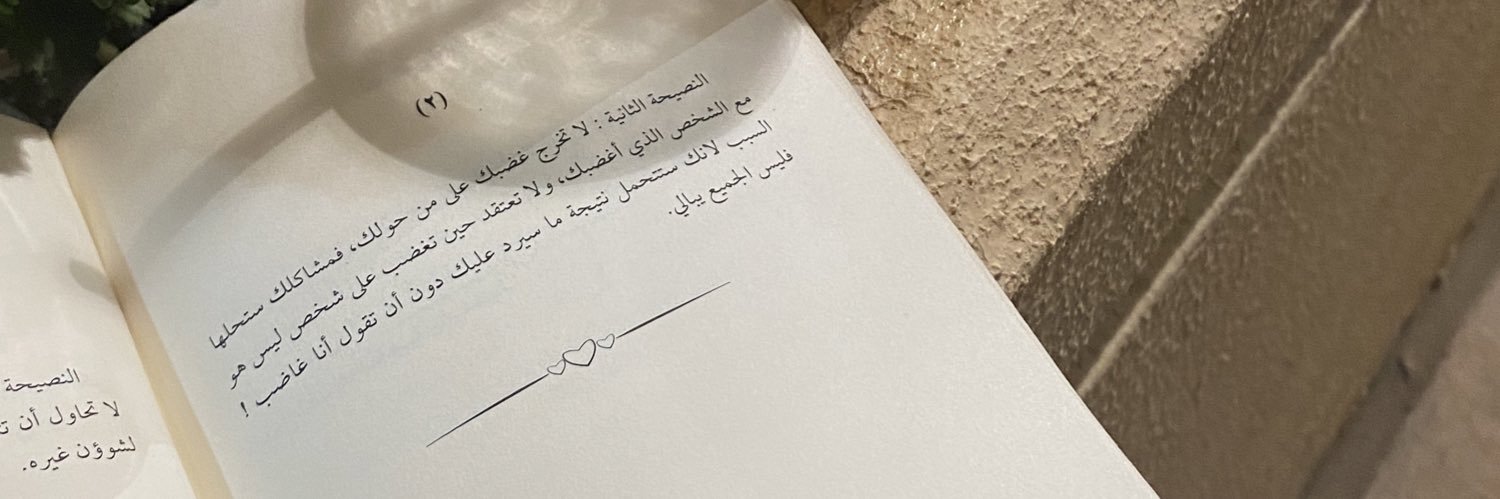 (٢)
النصيحة الثانية : لا تخرج غضبك على من حولك، فمشاكلك ستحلها
مع الشخص الذي أغضبك، ولا تعتقد حين تغضب على شخص ليس هو
السبب لانك ستتحمل نتيجة ما سيرد عليك دون أن تقول أنا غاضب !
فليس الجميع يبالي.
النصيحة
لا تحاول أن
لشوؤن غيره.